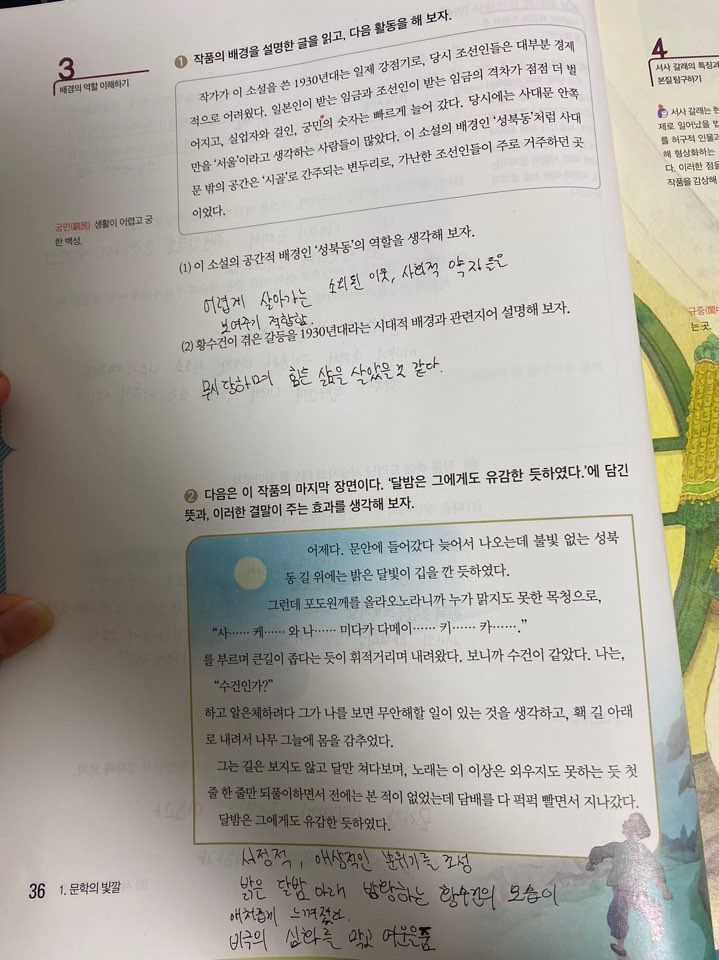 3
배경의 역할 이해하기
1 작품의 배경을 설명한 글을 읽고, 다음 활동을 해 보자.
작가가 이 소설을 쓴 1930년대는 일제 강점기로, 당시 조선인들은 대부분 경제
적으로 어려웠다. 일본인이 받는 임금과 조선인이 받는 임금의 격차가 점점 더 벌
어지고, 실업자와 걸인, 궁민의 숫자는 빠르게 늘어 갔다. 당시에는 사대문 안쪽
만을 ‘서울’이라고 생각하는 사람들이 많았다. 이 소설의 배경인 ‘성북동’처럼 사대
문 밖의 공간은 ‘시골’로 간주되는 변두리로, 가난한 조선인들이 주로 거주하던 곳
이었다.
궁민(窮民) 생활이 어렵고 궁
한 백성.
(1) 이 소설의 공간적 배경인 ‘성북동’의 역할을 생각해 보자.
어렵게 살아가는 소외된 이웃, 사회적 약자들을
보여주기 적합함.
(2) 황수건이 겪은 갈등을 1930년대라는 시대적 배경과 관련지어 설명해 보자.
무시당하며 힘든 삶을 살았을 것 같다.
2 다음은 이 작품의 마지막 장면이다. ‘달밤은 그에게도 유감한 듯하였다.’에 담긴
뜻과, 이러한 결말이 주는 효과를 생각해 보자.
어제다. 문안에 들어갔다 늦어서 나오는데 불빛 없는 성북
동 길 위에는 밝은 달빛이 깁을 깐 듯하였다.
그런데 포도원께를 올라오노라니까 누가 맑지도 못한 목청으로,
“사…… 케…… 와 나…… 미다카 다메이…… 키…… 카…….”
를 부르며 큰길이 좁다는 듯이 휘적거리며 내려왔다. 보니까 수건이 같았다. 나는,
“수건인가?”
하고 알은체하려다 그가 나를 보면 무안해할 일이 있는 것을 생각하고, 홱 길 아래
로 내려서 나무 그늘에 몸을 감추었다.
그는 길은 보지도 않고 달만 쳐다보며, 노래는 이 이상은 외우지도 못하는 듯 첫
줄 한 줄만 되풀이하면서 전에는 본 적이 없었는데 담배를 다 퍽퍽 빨면서 지나갔다.
달밤은 그에게도 유감한 듯하였다.
서정적, 애상적인 분위기를 조성
밝은 달밤 아래 방황하는 황수건의 모습이
애처롭게 느껴졌다.
비극의 심화를 막고 여운을 줌
36 1. 문학의 빛깔
4
서사 갈래의 특징과
본질 탐구하기
서사 갈래는 현
제로 일어났을 법
를 허구적 인물과
해 형상화하는
다. 이러한 점을
작품을 감상해
규중(閨中
는 곳.